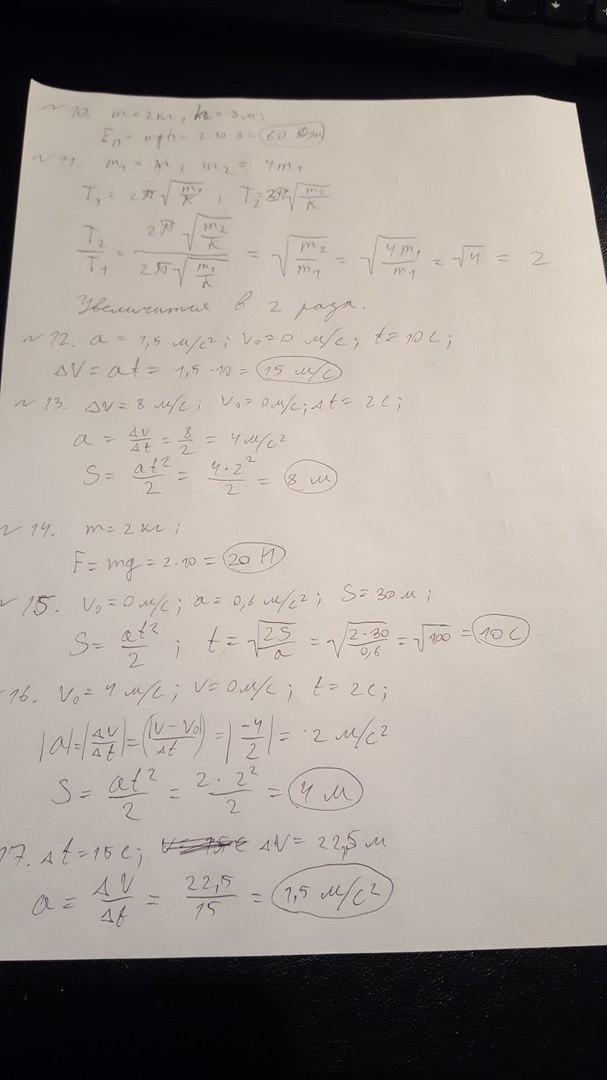 ~ 10. m = 2 кг, h = 3 м;
Eп = mgh = 2·10·3 = 60 Дж
~ 11. m₁ = m; m₂ = 4m₁
T₁ = 2π√(m₁/k) ; T₂ = 2π√(m₂/k)
T₂/T₁ = 2π√(m₂/k) / 2π√(m₁/k) = √(m₂/m₁) = √(4m₁/m₁) = √4 = 2
Увеличится в 2 раза.
~ 12. a = 1,5 м/с²; V₀ = 0 м/с; t = 10 с;
ΔV = at = 1,5·10 = 15 м/с
~ 13. ΔV = 8 м/с; V₀ = 0 м/с; Δt = 2 с;
a = ΔV/Δt = 8/2 = 4 м/с²
S = at²/2 = 4·2²/2 = 8 м
~ 14. m = 2 кг;
F = mg = 2·10 = 20 Н
~ 15. V₀ = 0 м/с; a = 0,6 м/с²; S = 30 м;
S = at²/2 ; t = √(2S/a) = √(2·30/0,6) = √100 = 10 с
~ 16. V₀ = 4 м/с; V = 0 м/с; t = 2 с;
|a| = |ΔV/Δt| = |(V – V₀)/Δt| = |-4/2| = 2 м/с²
S = at²/2 = 2·2²/2 = 4 м
17. Δt = 15 с; ΔV = 22,5 м
a = ΔV/Δt = 22,5/15 = 1,5 м/с²